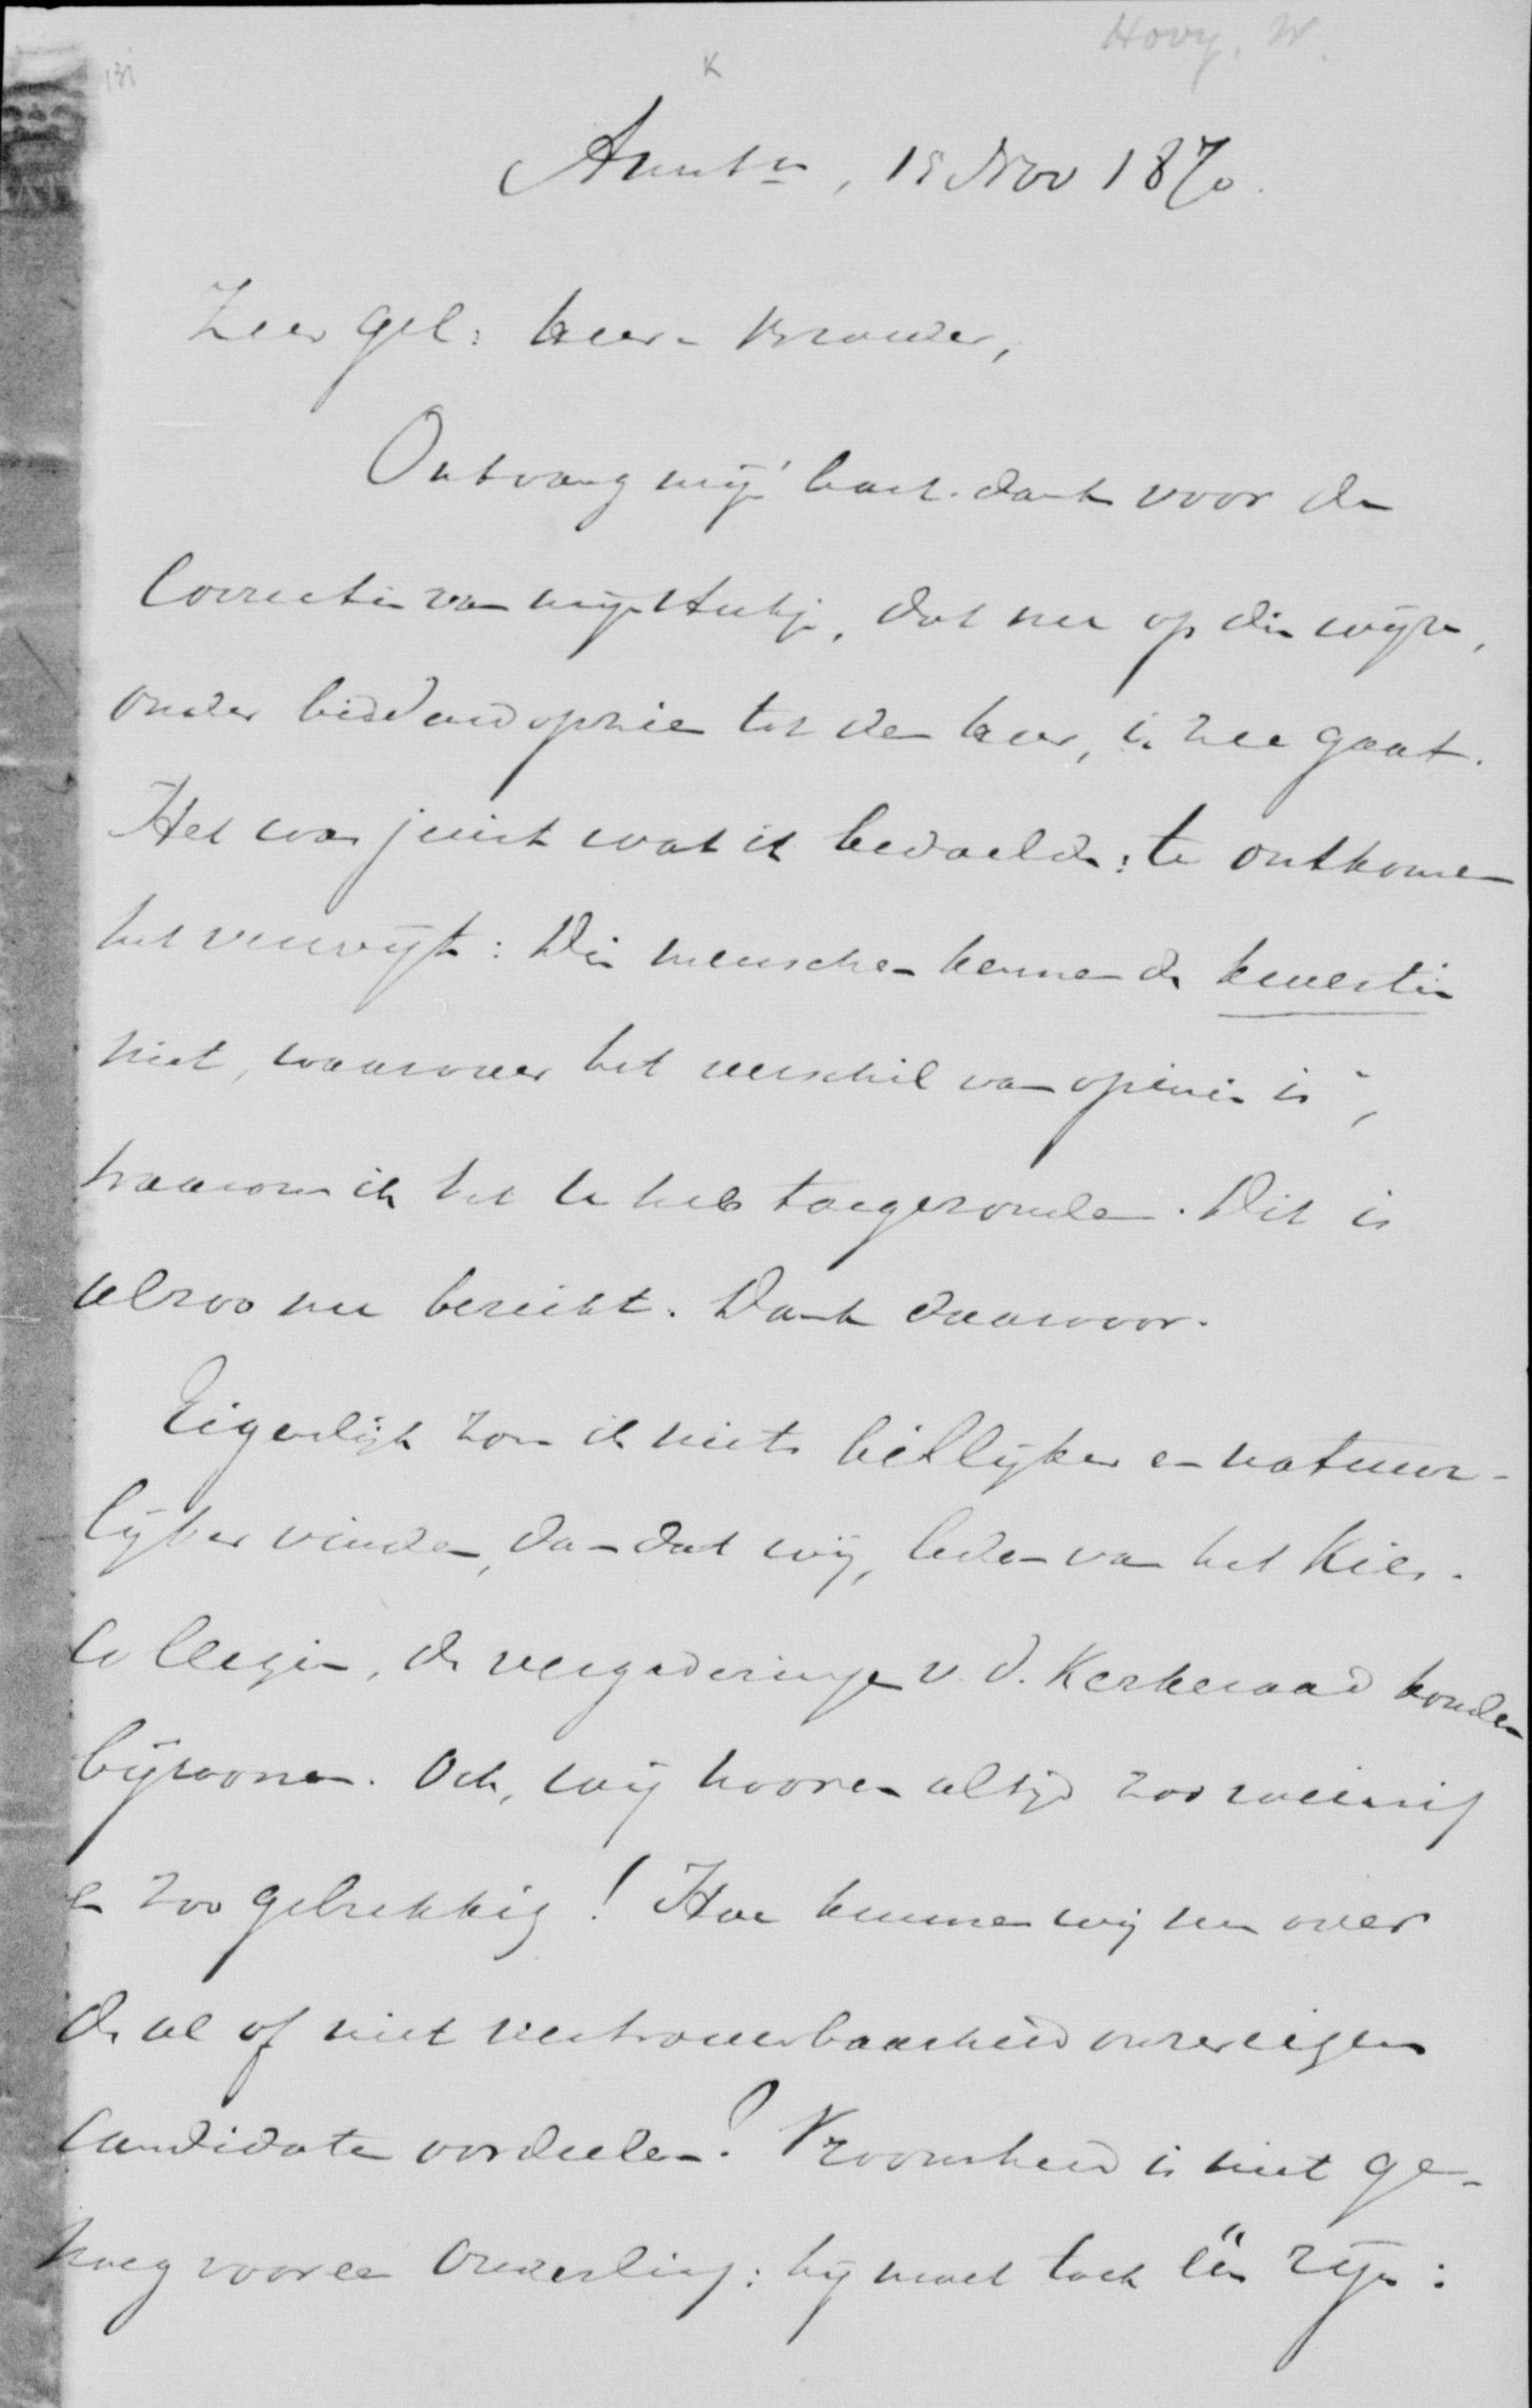 Hovy, W.
131
K
Amstm, 15 Nov 1870.
Zeer gel: heer & Broeder,
Ontvang mijn hart. dank voor de
Correctie van mijn stukje, dat nu op die wijze,
onder biddend opzien tot den heer, in zee gaat.
Het was juist wat ik bedoelde: te ontkomen
het verwijt: Die menschen kennen de kwestie
niet, waarover het verschil van opinie is",
waarom ik het U heb toegezonden. Dit is
alzoo nu bereikt. Dank daarvoor.
Eigenlijk zou ik niets billijker en natuur-
lijker vinden, dan dat wij, leden van het Kies-
Collegie, de vergaderingen v. d. Kerkeraad konden
bijwonen. Och, wij hooren altijd zoo weinig
en zoo gebrekkig! Hoe kunnen wij nu over
de al of niet vertrouwbaarheid onzer eigen
Candidaten oordeelen? Vroomheid is niet ge-
noeg voor een Ouderling: hij moet toch één zijn: